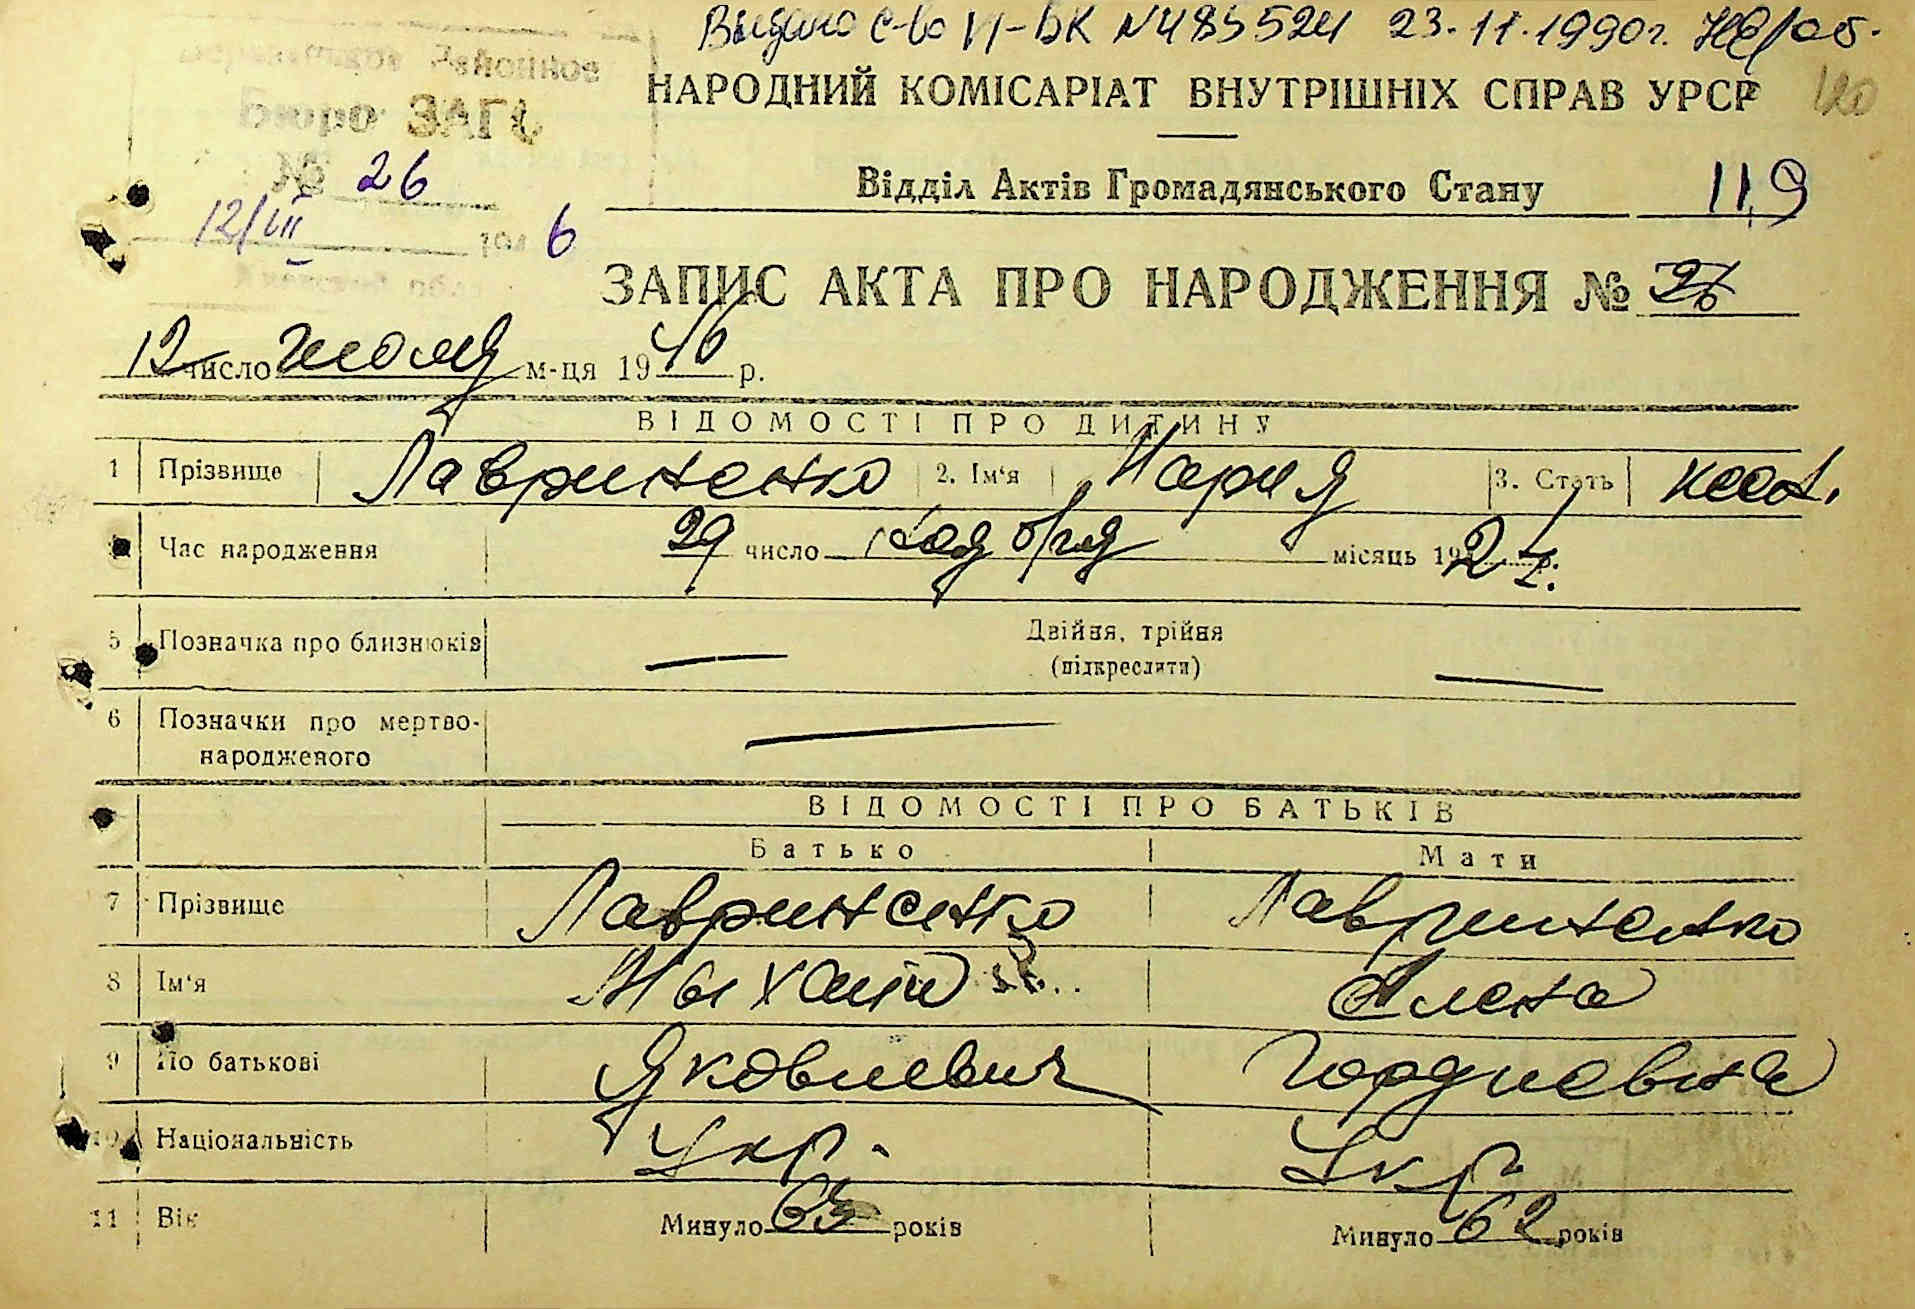 Видано с-во № 485524 23.11.1990г.
НАРОДНИЙ КОМІСАРІАТ ВНУТРІШНІХ СПРАВ УРСР 120
Районное
Бюро ЗАГС
№ 26
12/VII 194 6
Киевской обл.
Відділ Актів Громадянського Стану 119
ЗАПИС АКТА ПРО НАРОДЖЕННЯ № 26
12 число июля м-ця 1946 р.
ВІДОМОСТІ ПРО ДИТИНУ
1 Прізвище Лавриненко 2. Ім'я Мария 3. Стать
Час народження 29 число місяць 192 р.
5 Позначка про близнюків Двійня, трійня
(підкреслити)
6 Позначки про мертво-
народженого
ВІДОМОСТІ ПРО БАТЬКІВ
Батько Мати
7 Прізвище Лавриненко Лавриненко
8 Ім'я Алена
9 По батькові Яковлевич Гордиевна
10 Національність Укр. Укр.
11 Вік Минуло 63 років Минуло 62 років